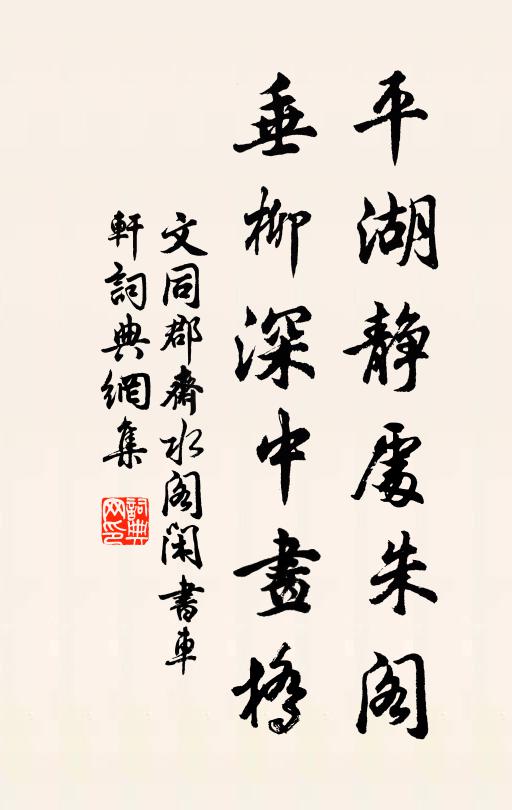 平湖靜處朱阁
垂柳深中畫橋
文同郡齋水阁閑書車
軒詞典網集
詞典
网印